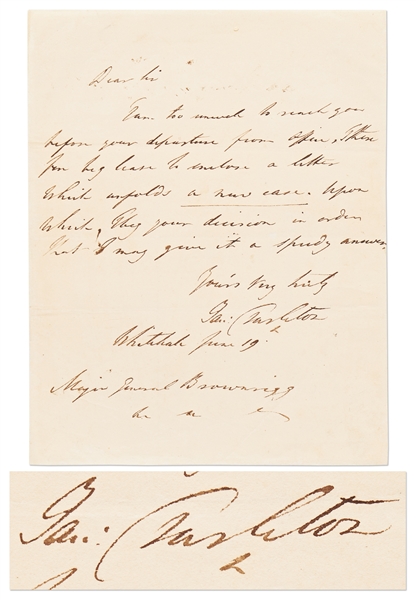 Dear Sir
I am too unwell to reach you
before your departure from office, I there
fore beg leave to enclose a letter
which unfolds a new case. Upon
which, I beg your decision in order
that I may give it a speedy answer.
Yours Very truly
Ban: Tarleton
Whitehall June 19th
Major General Brownrigg
Ban: Tarleton